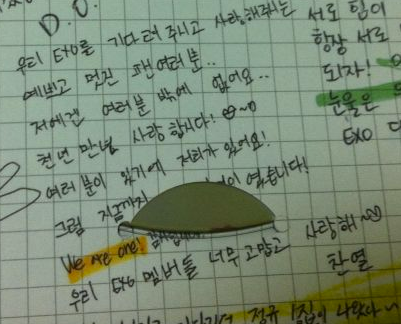 D.O.
우리 EXO를 기다려 주시고 사랑해주시는
예쁘고 멋진 팬여러분..
저에겐 여러분 밖에 없어요..
천년 만년 사랑합니다!
여러분이 있기에 저희가 있어요!
그럼 지금까지 이 였습니다!
We are one!
우리 EXO 멤버들 너무 고맙고 사랑해~
찬열
서로 힘이
항상 서로
되자!
눈물은
EXO
정규 1집이 나왔다~